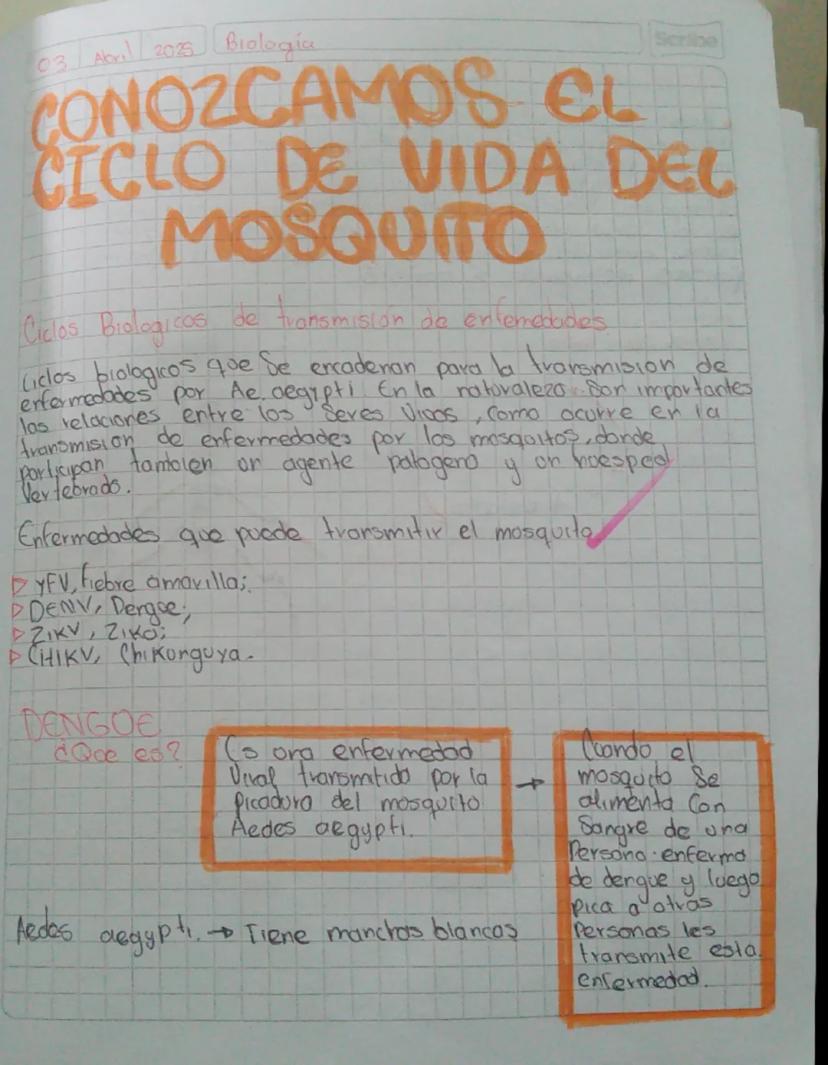 03 Abril 2025 Biología
Scribe
CONOZCAMOS EL
CICLO DE VIDA DEL
MOSQUITO
Ciclos Biologicos de transmisión de enfemedades
Ciclos biologicos que Se encadenan para la transmision de
enfermedades por Ae. aegypti En la naturaleza. Son importantes
las relaciones entre los Seres Vivos, como ocurre en la
transmision de enfermedades por los mosquitos, donde
participan tambien un agente patogeno y un huesped
Vertebrado.
Enfermedades que puede transmitir el mosquito
▷ YFV, fiebre amarilla;
▷ DENV, Dengue;
▷ ZIKV, Zika;
▷ CHIKV, Chikunguya.
DENGUE
¿Que es?
Es una enfermedad
Viral transmitida por la
Picadura del mosquito
Aedes aegypti.
→
Cuando el
mosquito Se
alimenta Con
Sangre de una
Persona enferma
de dengue y luego
pica a otras
Personas les
transmite esta
enfermedad.
Aedes aegypti. → Tiene manchas blancas